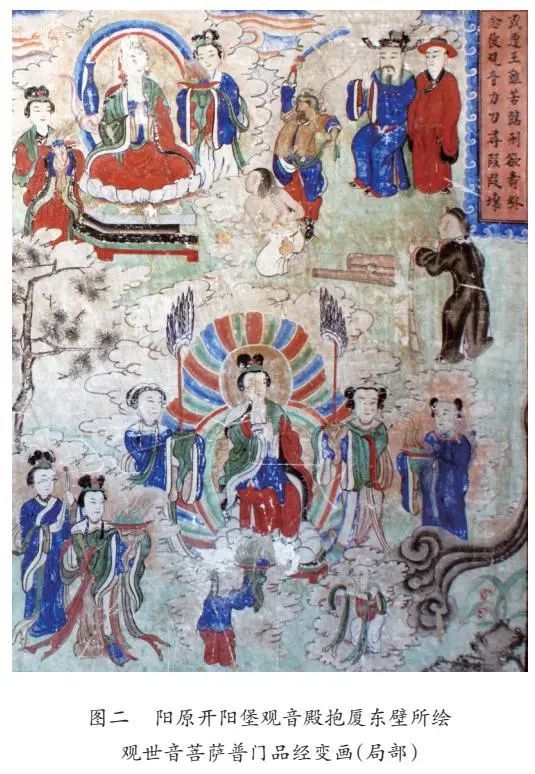 或遭王難苦臨刑欲壽終
念彼觀音力刀尋叚叚壞
图二　阳原开阳堡观音殿抱厦东壁所绘
观世音菩萨普门品经变画(局部)